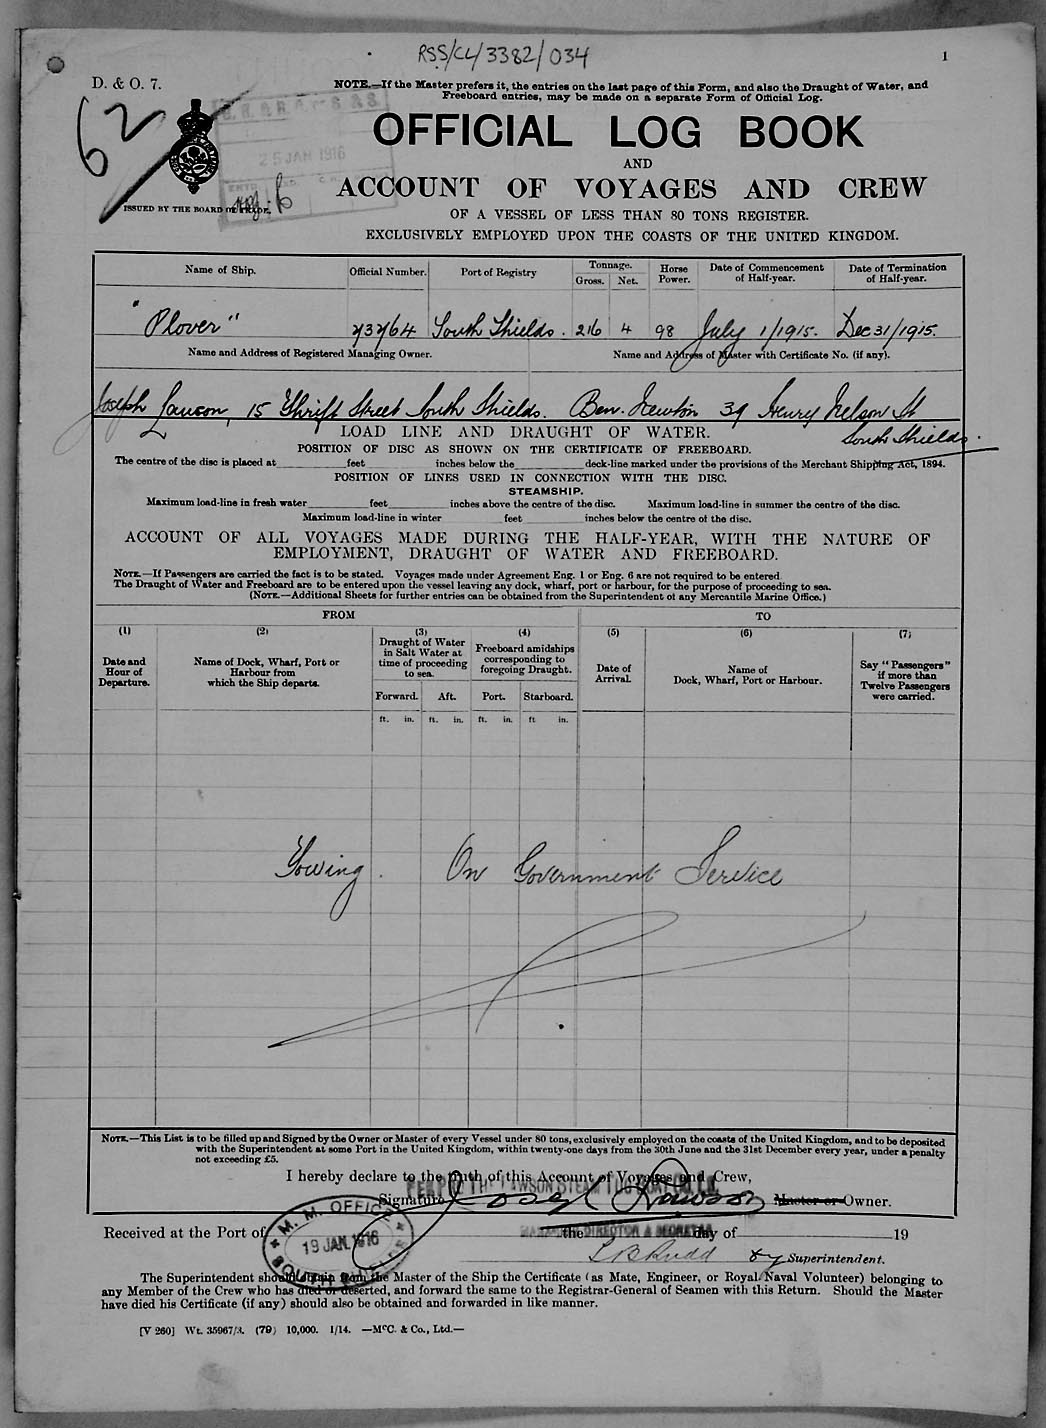 RSS/CL/3382/034
1
D. & O. 7.
62
NOTE.—If the Master prefers it, the entries on the last page of this Form, and also the Draught of Water, and
Freeboard entries, may be made on a separate Form of Official Log.
25 JAN 1916
OFFICIAL LOG BOOK
AND
ACCOUNT OF VOYAGES AND CREW
ISSUED BY THE BOARD OF TRADE.
OF A VESSEL OF LESS THAN 80 TONS REGISTER.
EXCLUSIVELY EMPLOYED UPON THE COASTS OF THE UNITED KINGDOM.
Name of Ship. Official Number. Port of Registry Tonnage. Gross. Net. Horse Power. Date of Commencement of Half-year. Date of Termination of Half-year.
"Plover" 73764 South Shields. 216 4 98 July 1/1915. Dec 31/1915.
Name and Address of Registered Managing Owner. Name and Address of Master with Certificate No. (if any).
Joseph Lawson, 15 Thrift Street South Shields. Ben. Newton 39 Henry Nelson St
South Shields.
LOAD LINE AND DRAUGHT OF WATER.
POSITION OF DISC AS SHOWN ON THE CERTIFICATE OF FREEBOARD.
The centre of the disc is placed at feet inches below the deck-line marked under the provisions of the Merchant Shipping Act, 1894.
POSITION OF LINES USED IN CONNECTION WITH THE DISC.
STEAMSHIP.
Maximum load-line in fresh water feet inches above the centre of the disc. Maximum load-line in summer the centre of the disc.
Maximum load-line in winter feet inches below the centre of the disc.
ACCOUNT OF ALL VOYAGES MADE DURING THE HALF-YEAR, WITH THE NATURE OF
EMPLOYMENT, DRAUGHT OF WATER AND FREEBOARD.
NOTE.—If Passengers are carried the fact is to be stated. Voyages made under Agreement Eng. 1 or Eng. 6 are not required to be entered
The Draught of Water and Freeboard are to be entered upon the vessel leaving any dock, wharf, port or harbour, for the purpose of proceeding to sea.
(NOTE.—Additional Sheets for further entries can be obtained from the Superintendent of any Mercantile Marine Office.)
FROM TO
(1) (2) (3) (4) (5) (6) (7)
Date and Hour of Departure. Name of Dock, Wharf, Port or Harbour from which the Ship departs. Draught of Water in Salt Water at time of proceeding to sea. Freeboard amidships corresponding to foregoing Draught. Date of Arrival. Name of Dock, Wharf, Port or Harbour. Say "Passengers" if more than Twelve Passengers were carried.
Forward. Aft. Port. Starboard.
ft. in. ft. in. ft. in. ft in.
Towing. On Government Service
NOTE.—This List is to be filled up and Signed by the Owner or Master of every Vessel under 80 tons, exclusively employed on the coasts of the United Kingdom, and to be deposited
with the Superintendent at some Port in the United Kingdom, within twenty-one days from the 30th June and the 31st December every year, under a penalty
not exceeding £5.
I hereby declare to the truth of this Account of Voyages and Crew,
Signature Joseph Lawson Master or Owner.
Received at the Port of the day of 19
M. M. OFFICE
19 JAN. 1916
SOUTH SHIELDS
MANAGING DIRECTOR & SECRETARY
Superintendent.
The Superintendent should obtain from the Master of the Ship the Certificate (as Mate, Engineer, or Royal Naval Volunteer) belonging to
any Member of the Crew who has died or deserted, and forward the same to the Registrar-General of Seamen with this Return. Should the Master
have died his Certificate (if any) should also be obtained and forwarded in like manner.
[V 260] Wt. 35967/3. (79) 10,000. 1/14. —McC. & Co., Ltd.—